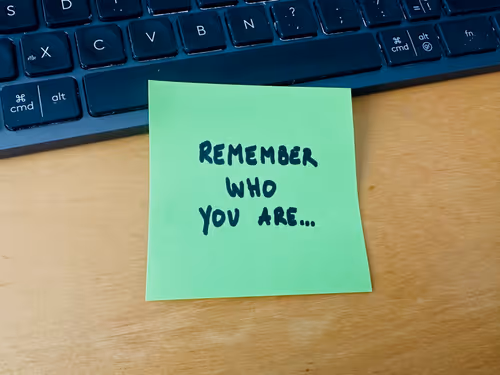 S D
X C V B N ? : ! cmd alt fn
cmd alt
REMEMBER
WHO
YOU ARE...